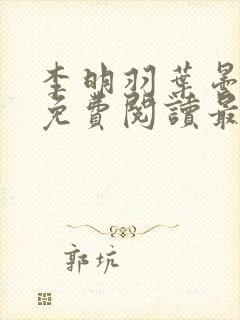 李明羽葉
免費閱讀最
郭坑